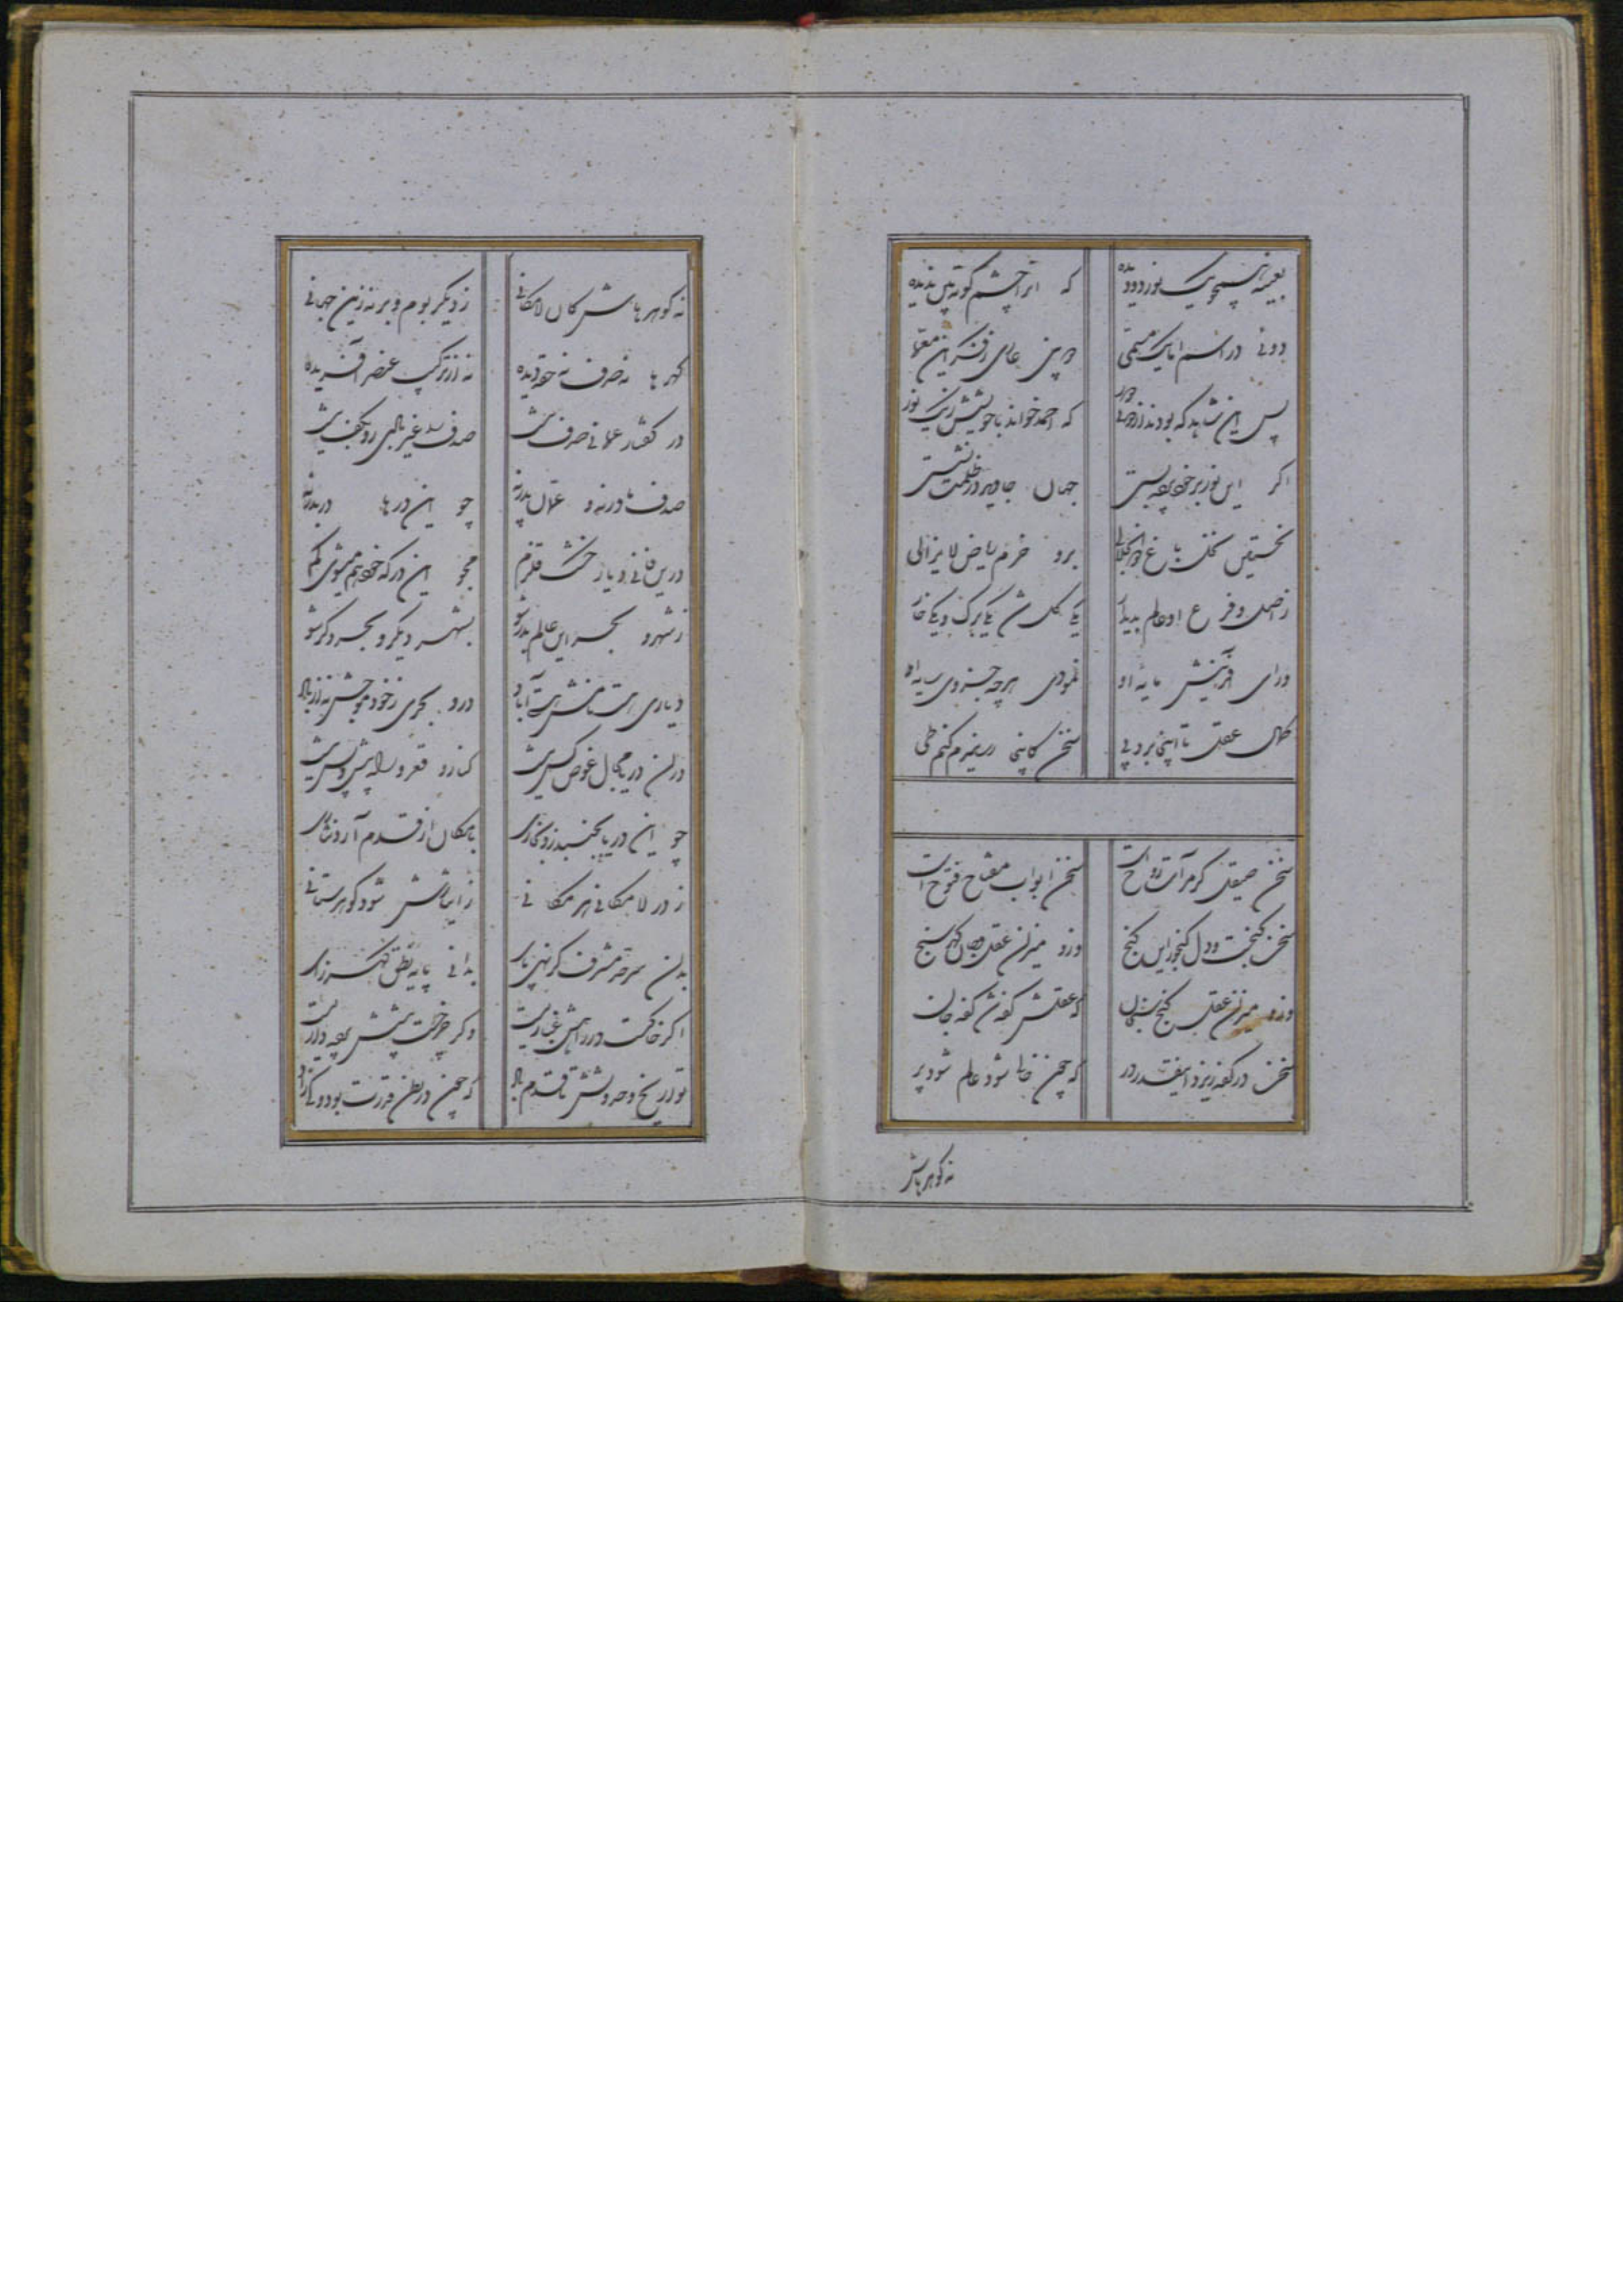 بعینه همچو یک نور دو دیده که آنرا چشم کوته بین ندیده
دوئی در اسم اما یک مسمی درین عالی رقم کن این معما
پس این شاهد که بودند از دوئی دور که احمد خواند با خویشش ز یک نور
اگر این نور بر خود پرده بستی جهان جاوید در ظلمت نشستی
نخستین نخل باغ ذوالجلالی برو خرم ریاض لایزالی
ز اصل و فرع او عالم پدیدار یکی گل شد یکی برگ و یکی خار
ورای آفرینش مایه او نمودی هرچه جزوی سایه او
کمال عقل تا اینجا برد پی سخن کاینجا رسانیدم کنم طی
سخن صیقلگر مرآت روح است سخن ابواب مفتاح فتوح است
سخن گنجست و دل گنجور این گنج وزو میزان عقل و جان گهر سنج
وزو میزان عقل گنج سنجان که عقلش کفه‌ش کفه جان
سخن در کفه ریزد اینقدر در که چون خالی شود عالم شود پر
نه گوهرهاش
نه گوهرهاش کان لامکانی ز دیگر بوم و بر نه زین جهانی
گهرها نه صدف نه حقه دیده نه از ترکیب عنصر آفریده
در گفتار عمانی صدف نیست صدف را غیر بادی زو بکف نیست
صدف مادر نه و عمان پدر نه چو این درها دربدر نه
درین فانی دیار خشک قلزم مجو این در که خود هم میشوی گم
ز شهر و بحر این عالم بدر شو بشهر دیگر و بحر دگر شو
دیاری هست نامش هستی آباد درو بحری ز خود موجش نه از باد
در آن دریا مجال غوص کس نیست کنار و قعر و راه پیش و پس نیست
چو این دریا بجنبد زو بخاری بامکان از قدم آرد نثاری
ز در لامکانی هر مکانی ز ایثارش شود گوهر ستانی
بدان سرحد مشرف گر نهی پای بدانی پایه نطق گهرزای
اگر خاکست در راهش غباریست وگر چرخست پیشش پرده داریست
تواریخ حدوثش تا قدم یاد که چون در بطن قدرت بود و کی زاد